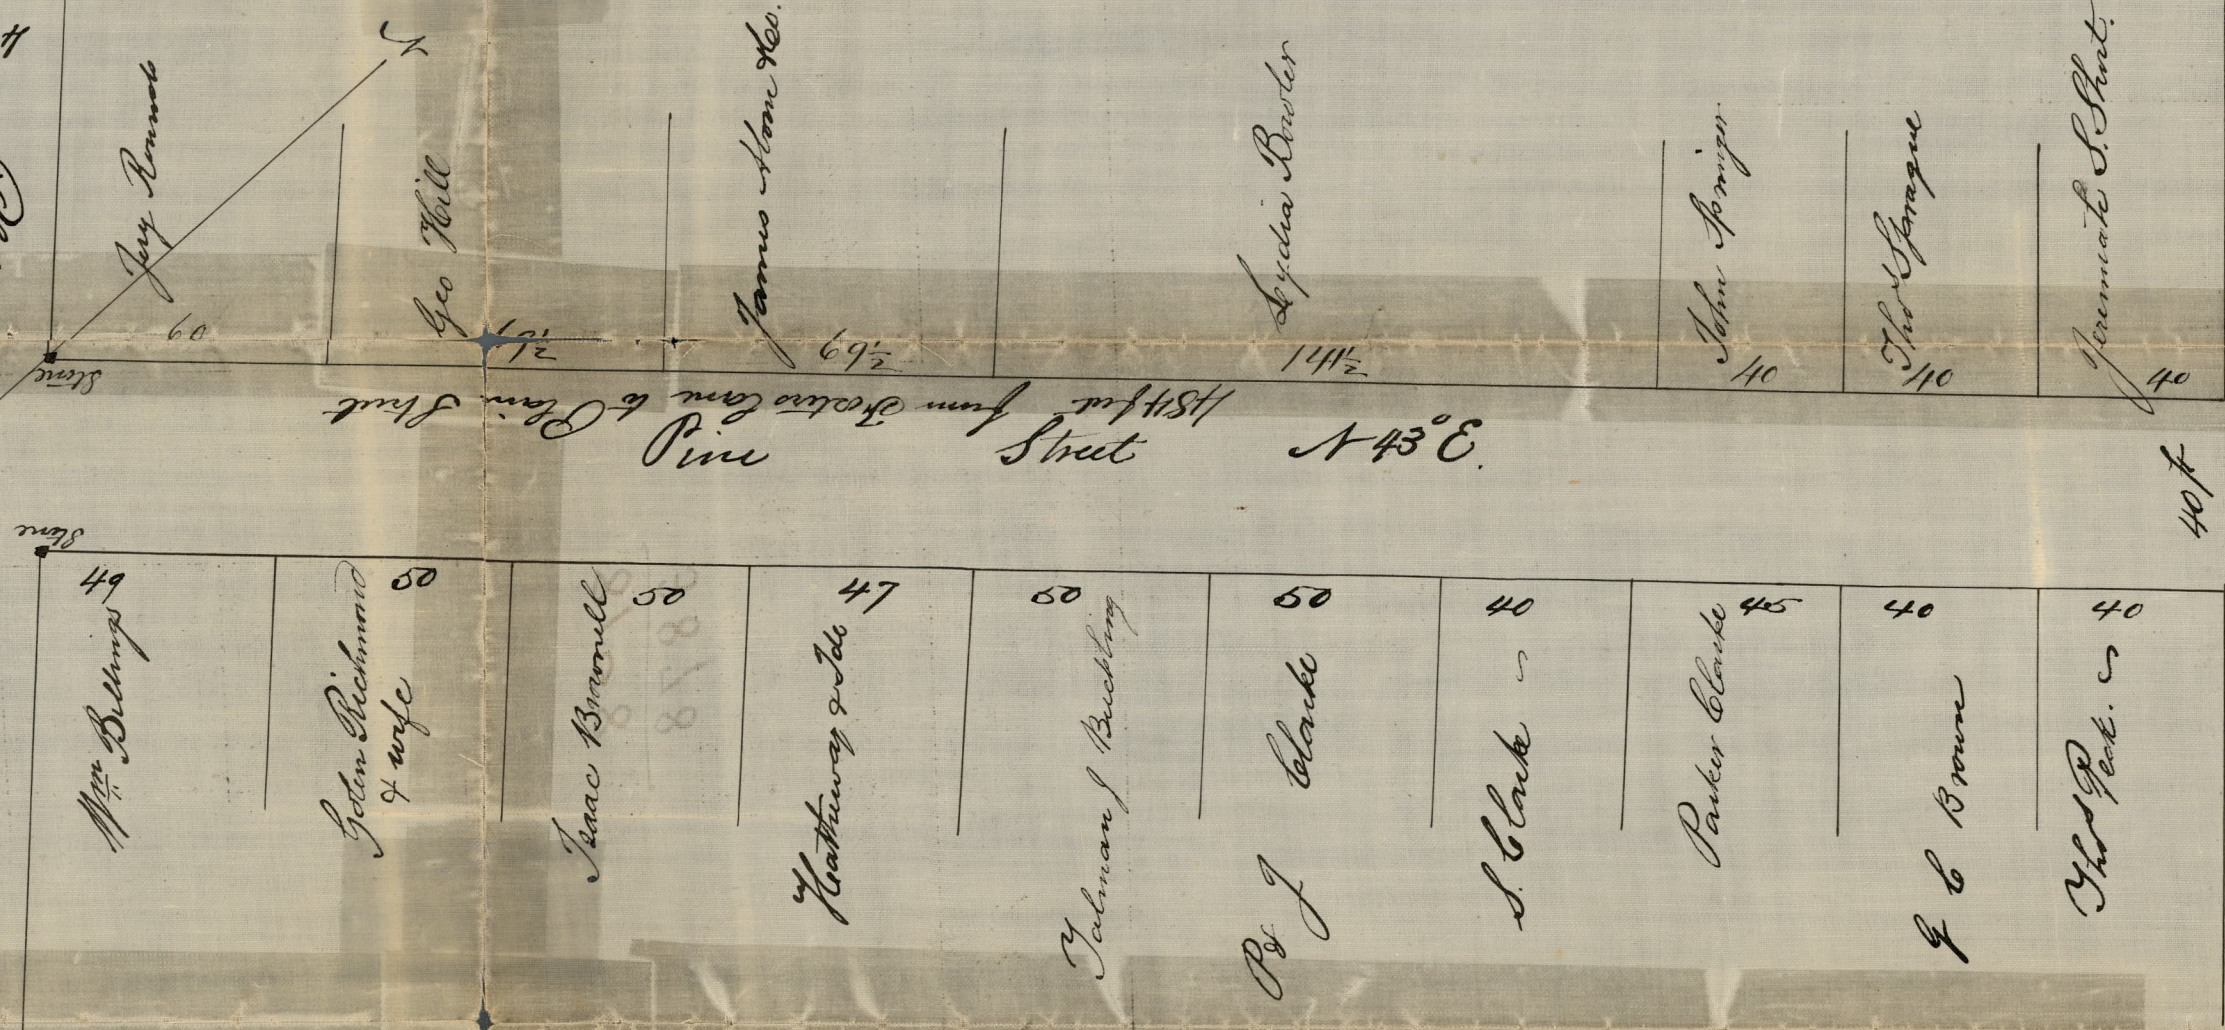 Jery Rounds
60
Geo Hill
James Strom & Co.
69½
Lydia Bowler
141½
John Springer
40
Thos Sprague
40
Jeremiah S. Short.
40
Stone
484 feet from Fosters lane to Plain Street
Pine Street N 43° E.
40 ft
Stone
49
Wm Billings
50
Goten Richmond
& wife
50
Isaac Brownell
47
Heathway & Ide
50
Talman J Bucklin
50
P & J Clarke
40
S. Clarke
45
Parker Clarke
40
G C Brown
40
Thos Peck.